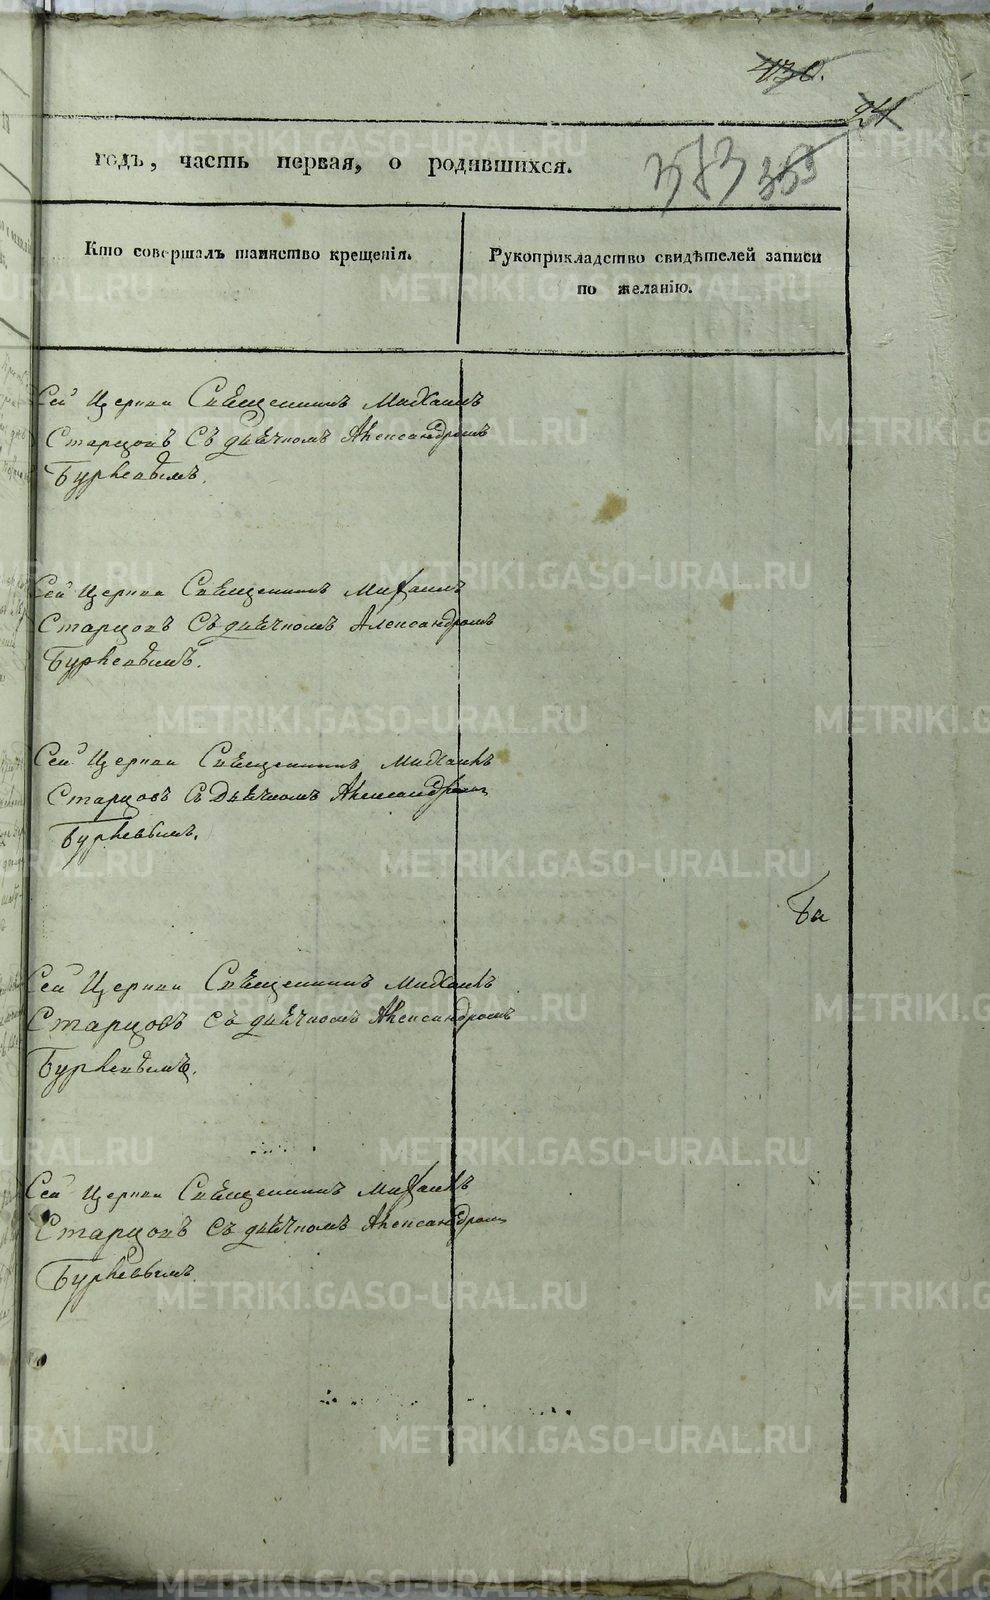 430.
24
годъ, часть первая, о родившихся.
383 353
Кто совершалъ таинство крещенія.
Рукоприкладство свидѣтелей записи
по желанію.
Сей Церкви Священникъ Михаилъ
Старцовъ Съ дьячкомъ Александромъ
Сей Церкви Священникъ Михаилъ
Старцовъ Съ дьячкомъ Александромъ
Сей Церкви Священникъ Михаилъ
Старцовъ Съ Дьячкомъ Александромъ
Сей Церкви Священникъ Михаилъ
Старцовъ съ дьячкомъ Александромъ
Сей Церкви Священникъ Михаилъ
Старцовъ Съ дьячкомъ Александромъ
METRIKI.GASO-URAL.RU